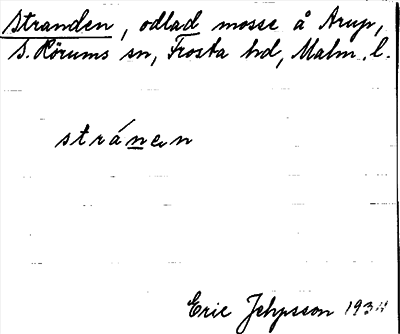 Stranden, odlad mosse å Arup,
S. Rörums sn, Frosta hd, Malm. l.
stránen
Eric Jehpsson 1934